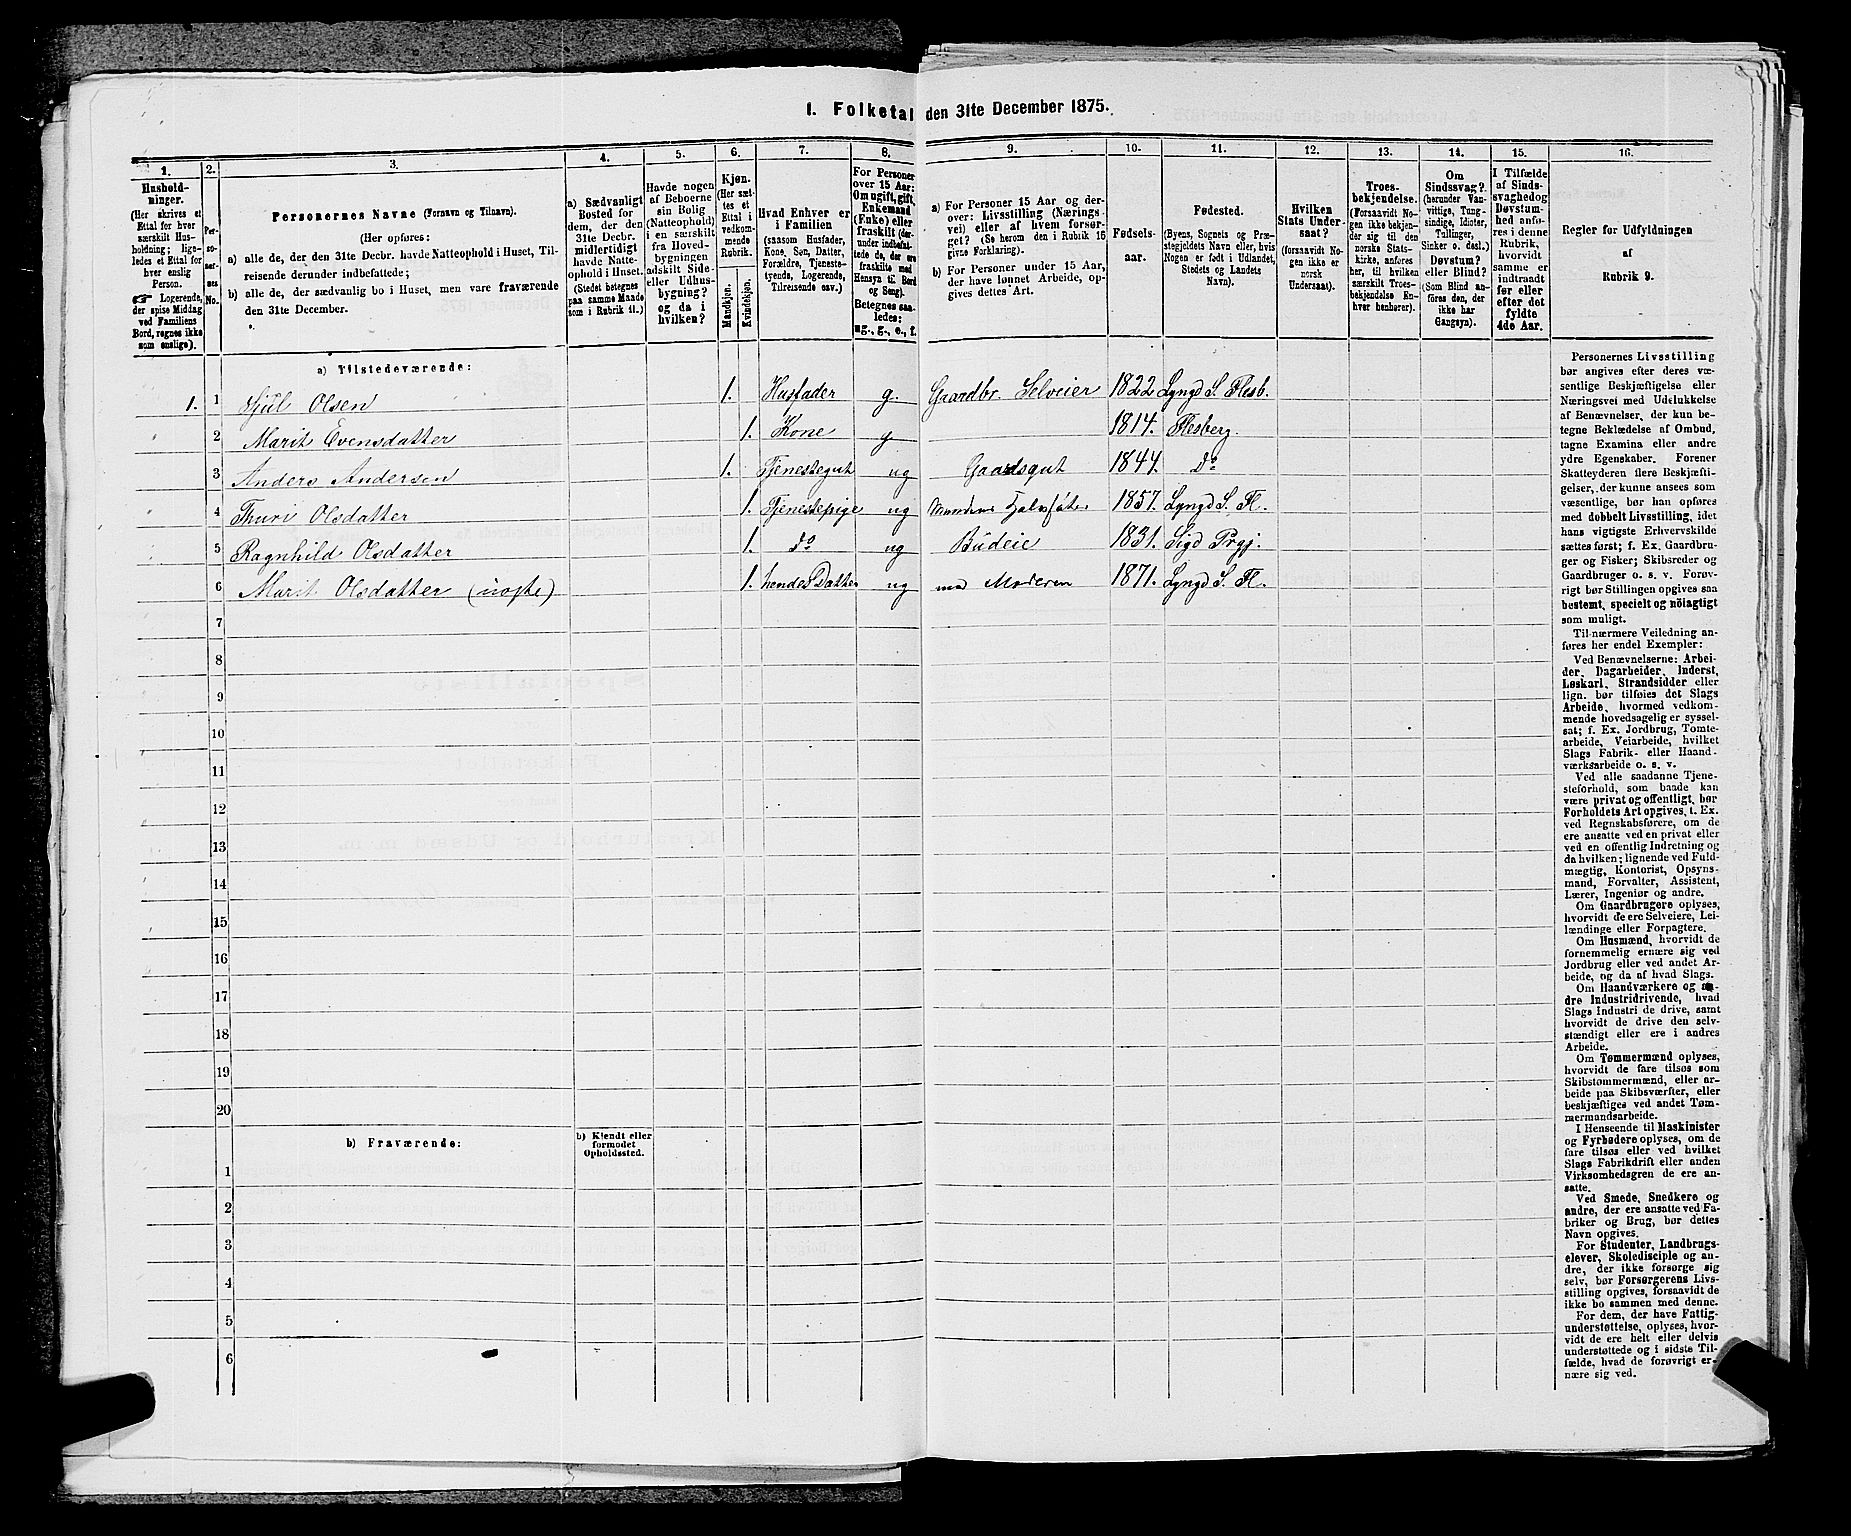 1. Folketal den 31te December 1875.
1.
2.
3.
4.
5.
6.
7.
8.
9.
10.
11.
12.
13.
14.
15.
16.
Husholdninger.
(Her skrives et
Ettal for hver
særskilt Husholdning;
ligeledes et Ettal for
hver enslig
Person.
☞ Logerende,
der spise Middag
ved Familiens
Bord, regnes ikke
som enslige).
Personernes No.
Personernes Navne (Fornavn og Tilnavn).
(Her opføres:
a) alle de, der den 31te Decbr. havde Natteophold i Huset, Tilreisende derunder indbefattede;
b) alle de, der sædvanlig bo i Huset, men vare fraværende
den 31te December.
a) Sædvanligt
Bosted for
dem, der den
31te Decbr.
midlertidigt
havde Natteophold i Huset.
(Stedet betegnes
paa samme Maade
som i Rubrik 11.)
Havde nogen
af Beboerne
sin Bolig
(Natteophold)
i en særskilt
fra Hovedbygningen
adskilt Side-
eller Udhusbygning?
og da i
hvilken?
Kjøn.
(Her sættes et
Ettal i
vedkommende
Rubrik.
Mandkjøn.
Kvindekjøn.
Hvad Enhver er
i Familien
(saasom Husfader,
Kone, Søn, Datter,
Forældre, Tjenestetyende, Logerende,
Tilreisende osv.)
For Personer
over 15 Aar:
Om ugift, gift,
Enkemand
(Enke) eller
fraskilt (derunder indbefattede de, der ere
fraskilte med
Hensyn til Bord
og Seng).
Betegnes saaledes:
ug., g., e., f.
a) For Personer 15 Aar og derover: Livsstilling (Næringsvei) eller af hvem forsørget? (Se herom den i Rubrik 16
givne Forklaring).
b) For Personer under 15 Aar,
der have lønnet Arbeide, opgives dettes Art.
Fødselsaar.
Fødested.
(Byens, Sognets og Præstegjeldets Navn eller, hvis
Nogen er født i Udlandet,
Stedets og Landets
Navn).
Hvilken
Stats Undersaat?
(forsaavidt Nogen ikke er
norsk
Undersaat).
Troesbekjendelse.
(Forsaavidt Nogen ikke bekjender sig til den
norske Statskirke, anføres
her, til hvilken
særskilt Troesbekjendelse Enhver henhører).
Om
Sindssvag?
(herunder Vanvittige, Tungsindige, Idioter,
Tullinger,
Sinker o. desl.)
Døvstum?
eller Blind?
(Som Blind anføres den, der
ikke har
Gangsyn).
I Tilfælde
af Sindssvaghed og
Døvstumhed anføres i denne
Rubrik,
hvorvidt
samme er
indtraadt
før eller
efter det
fyldte
4de Aar.
Regler for Udfyldningen
af
Rubrik 9.
a) Tilstedeværende:
1. 1 Gjul Olsen 1. Husfader g. Gaardbr. Selveier 1822 Lyngd S. Flesb.
" 2 Marit Evensdatter 1. Kone g 1814. Flesberg.
" 3 Anders Andersen 1. Tjenestegut ug Gaardsgut 1844. Do
" 4 Thuri Olsdatter 1. Tjenestepige ug 1857. Lyngd S. Fl.
" 5 Ragnhild Olsdatter 1. do ug Budeie 1831. Sigd Prgj.
" 6 Marit Olsdatter 1. hendes Datter ug med Moderen 1871. Lyngd S. Fl.
7
8
9
10
11
12
13
14
15
16
17
18
19
20
b) Fraværende:
b) Kjendt eller
formodet
Opholdssted.
1
2
3
4
5
6
Personernes Livsstilling
bør angives efter deres væsentlige Beskjæftigelse eller
Næringsvei med Udelukkelse
af Benævnelser, der kun betegne Beklædelse af Ombud,
tagne Examina eller andre
ydre Egenskaber. Forener
Skatteyderen flere Beskjæftigelser, der kunne ansees som
væsentlige, bør han opføres
med dobbelt Livsstilling, idet
hans vigtigste Erhvervskilde
sættes først; f. Ex. Gaardbruger og Fisker; Skibsreder og
Gaardbruger o. s. v. Forøvrigt bør Stillingen opgives saa
bestemt, specielt og nöiagtigt
som muligt.
Til nærmere Veiledning anføres her endel Exempler:
Ved Benævnelserne: Arbeider, Dagarbeider, Inderst,
Løskarl, Strandsidder eller
lign. bør tilføies det Slags
Arbeide, hvormed vedkommende hovedsagelig er sysselsat; f. Ex. Jordbrug, Tomtearbeide, Veiarbeide, hvilket
Slags Fabrik- eller Haandværksarbeide o. s. v.
Ved alle saadanne Tjenesteforhold, som baade kan
være privat og offentligt, bør
Forholdets Art opgives, t. Ex.
ved Regnskabsførere, om de
ere ansatte ved en privat eller
ved en offentlig Indretning og
da hvilken; lignende ved Fuldmægtig, Kontorist, Opsynsmand, Forvalter, Assistent,
Lærer, Ingeniør og andre.
Om Gaardbrugere oplyses,
hvorvidt de ere Selveiere, Leilændinge eller Forpagtere.
Om Husmænd, hvorvidt de
fornemmelig ernære sig ved
Jordbrug eller ved andet Arbeide, og da af hvad Slags.
Om Haandværkere og andre Industridrivende, hvad
Slags Industri de drive, samt
hvorvidt de drive den selvstændigt eller ere i andres
Arbeide.
Om Tømmermænd oplyses,
hvorvidt de fare tilsøs som
Skibstømmermænd, eller arbeide paa Skibsværfter, eller
beskjæftiges ved andet Tømmermandsarbeide.
I Henseende til Maskinister
og Fyrbødere oplyses, om de
fare tilsøs eller ved hvilket
Slags Fabrikdrift eller anden
Virksomhedsgren de ere ansatte.
Ved Smede, Snedkere og
andre, der ere ansatte ved Fabriker og Brug, bør dettes
Navn opgives.
For Studenter, Landbrugselever, Skoledisciple og andre, der ikke forsørge sig
selv, bør Forsørgerens Livsstilling opgives, forsaavidt de
ikke bo sammen med denne.
For dem, der have Fattigunderstøttelse, oplyses, hvorvidt de ere helt eller delvis
understøttede og i sidste Tilfælde, hvad de forøvrigt ernære sig ved.